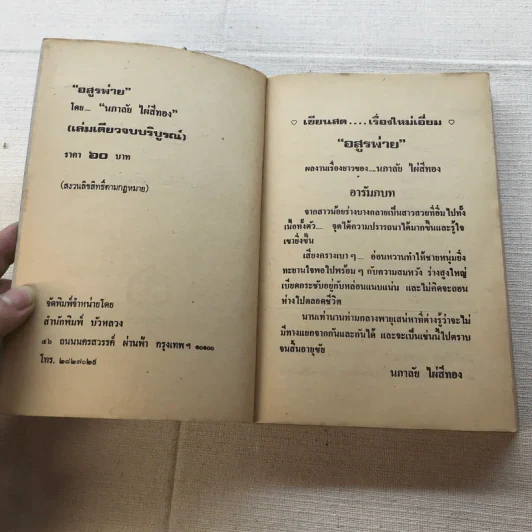 "อสูรพ่าย"
โดย... "นภาลัย ไผ่สีทอง"
(เล่มเดียวจบบริบูรณ์)
ราคา ๒๐ บาท
(สงวนลิขสิทธิ์ตามกฎหมาย)
จัดพิมพ์จำหน่ายโดย
สำนักพิมพ์ บัวหลวง
๔๖ ถนนนครสวรรค์ ผ่านฟ้า กรุงเทพฯ ๑๐๑๐๐
โทร. ๒๘๒๗๐๒๕
♡ เขียนสด....เรื่องใหม่เอี่ยม ♡
"อสูรพ่าย"
ผลงานเรื่องยาวของ...นภาลัย ไผ่สีทอง
อารัมภบท
จากสาวน้อยร่างบางกลายเป็นสาวสวยที่อิ่มไปทั้ง
เนื้อทั้งตัว... จุดไต้ความปรารถนาได้มากขึ้นและรู้ใจ
เขายิ่งขึ้น
เสียงครางเบา ๆ... อ่อนหวานทำให้ชายหนุ่มยิ่ง
ทะยานใจพอไปพร้อม ๆ กับความสมหวัง ร่างสูงใหญ่
เบียดกระชับอยู่กับหล่อนแนบแน่น และไม่คิดจะถอน
ห่างไปตลอดชีวิต
นานเท่านานท่ามกลางพายุเสน่หาที่ต่างรู้ว่าจะไม่
มีทางแยกจากกันและกันได้ และจะเป็นเช่นนี้ไปตราบ
จนสิ้นอายุขัย
นภาลัย ไผ่สีทอง